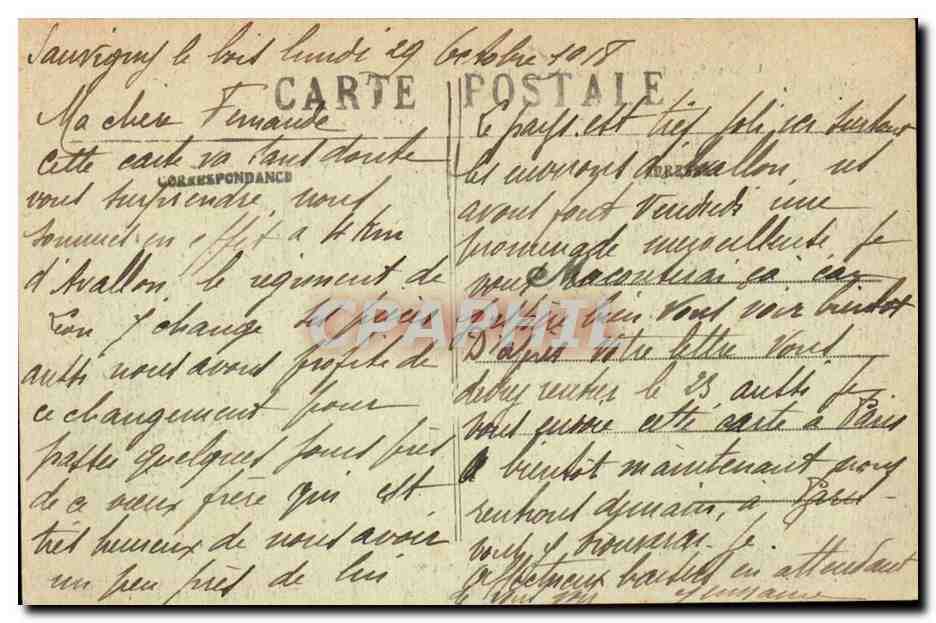 Sauvigny le bois lundi 29 Octobre 1918
CARTE POSTALE
Ma chère Fernande
cette carte va sans doute
CORRESPONDANCE
vous surprendre, nous
sommes en effet à 4 Km
d'Avallon, le régiment de
Léon y change ses pièces
aussi nous avons profité de
ce changement pour
passer quelques jours près
de ce vieux frère qui est
très heureux de nous avoir
un peu près de lui
Le pays est très joli ici surtout
les environs d'Avallon, et
avons fait Vendredi une
promenade merveilleuse je
vous raconterai ça car
j'espère bien vous voir bientôt
D'après votre lettre vous
devez rentrer le 23 aussi je
vous envoie cette carte à Paris
A bientôt maintenant nous
rentrons demain, à Paris
vous y trouverai-je
Affectueux baisers en attendant
Germaine
CPAPHIL